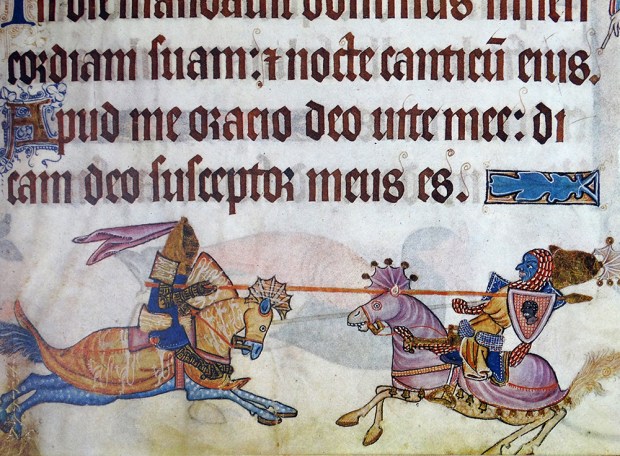 In die mandavit dominus miseri
cordiam suam: ⁊ nocte canticū eius.
Apud me oracio deo uite mee: di
cam deo susceptor meus es.